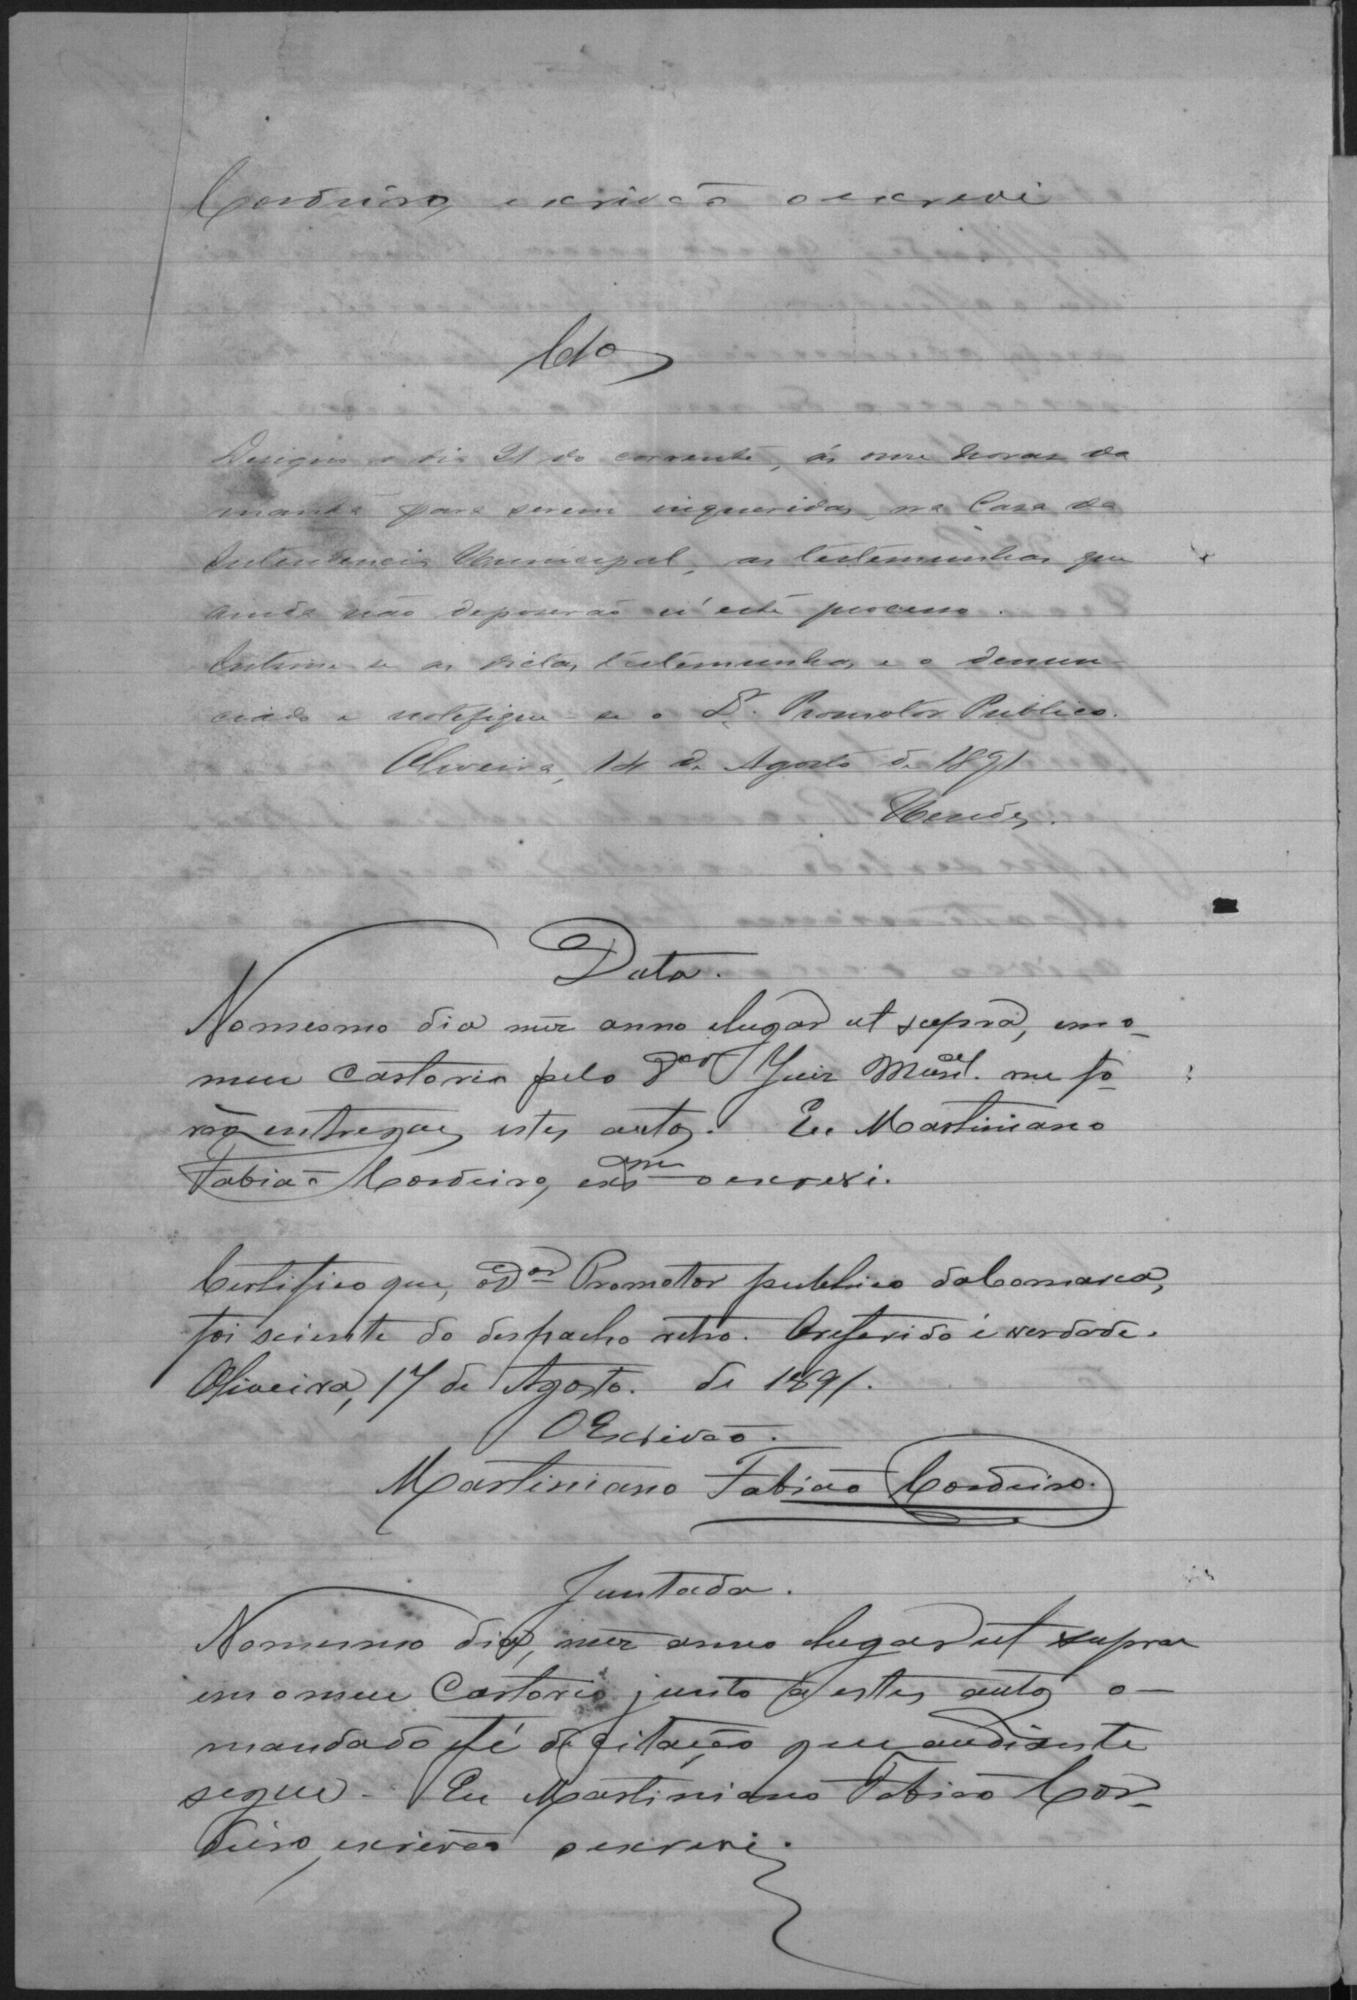 Cordeiro, escrivão o escrevi
Cls.
Designo o dia 21 do corrente, ás onze horas da
manhã para serem inqueridas, na Casa da
Intendencia Municipal, as testemunhas que
ainda não deposerão n'este processo.
Intime-se as dictas testemunhas e o denun-
ciado e notifique-se o Dr. Promotor Publico.
Oliveira, 14 de Agosto de 1891
Mendes.
Data.
No mesmo dia mez anno e lugar ut supra, em o
meu Cartorio pelo Dor Juiz Munal. me fo-
rão entregues estes autos. Eu Martiniano
Fabião Cordeiro, esam o escrevi.
Certifico que, o Dor Promotor publico da Comarca,
foi sciente do despacho retro. O referido é verdade.
Oliveira, 17 de Agosto. de 1891.
O Escrivão.
Martiniano Fabião Cordeiro.
Juntada.
No mesmo dia, mez anno e lugar ut supra
em o meu Cartorio junto a estes autos o
mandado e fé de citação que audiante
segue. Eu Martiniano Fabião Cor-
deiro, escrivão o escrevi.